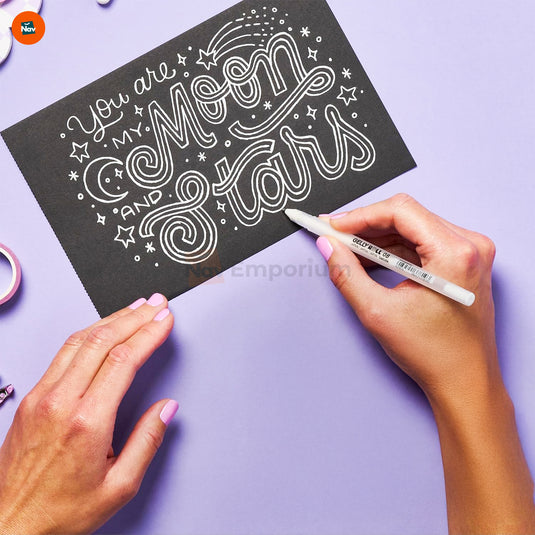 Nav
You are
MY Moon
AND Stars
GELLY ROLL 08
Nav Emporium